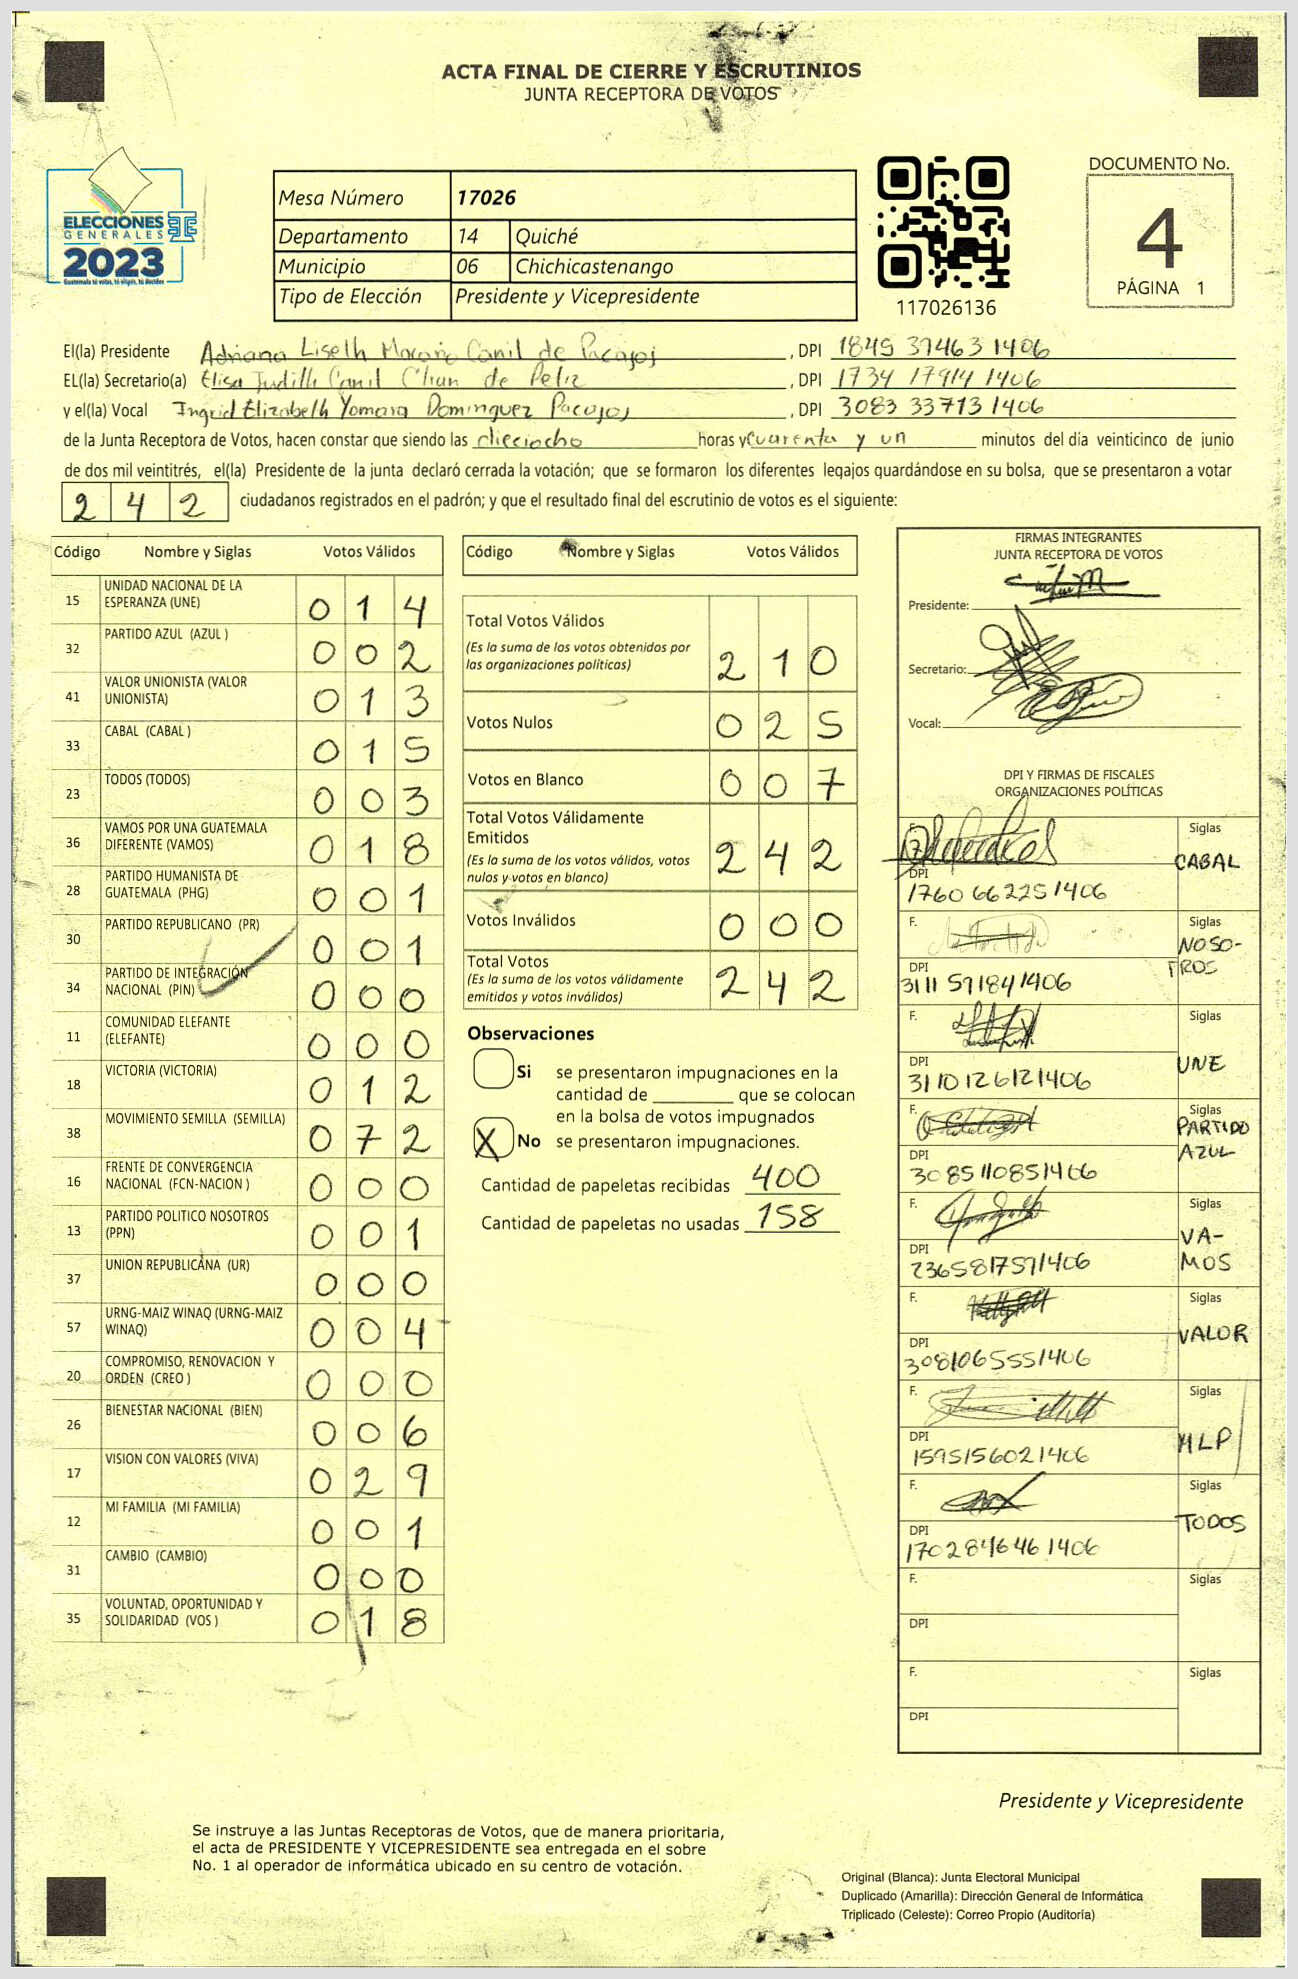 ACTA FINAL DE CIERRE Y ESCRUTINIOS
JUNTA RECEPTORA DE VOTOS
ELECCIONES
GENERALES
2023
Guatemala tú votas, tú eliges, tú decides
Mesa Número 17026
Departamento 14 Quiché
Municipio 06 Chichicastenango
Tipo de Elección Presidente y Vicepresidente
117026136
DOCUMENTO No.
4
PÁGINA 1
El(la) Presidente Adriana Liseth Canil de Pacajoj, DPI 1845 37463 1406
EL(la) Secretario(a) Elisa Judith Canil de Petiz, DPI 1734 17914 1406
y el(la) Vocal Ingrid Elizabeth Yomara Dominguez Pacajoj, DPI 3083 33713 1406
de la Junta Receptora de Votos, hacen constar que siendo las dieciocho horas y cuarenta y un minutos del día veinticinco de junio
de dos mil veintitrés, el(la) Presidente de la junta declaró cerrada la votación; que se formaron los diferentes legajos guardándose en su bolsa, que se presentaron a votar
242 ciudadanos registrados en el padrón; y que el resultado final del escrutinio de votos es el siguiente:
Código Nombre y Siglas Votos Válidos
15 UNIDAD NACIONAL DE LA ESPERANZA (UNE) 014
32 PARTIDO AZUL (AZUL ) 002
41 VALOR UNIONISTA (VALOR UNIONISTA) 013
33 CABAL (CABAL ) 015
23 TODOS (TODOS) 003
36 VAMOS POR UNA GUATEMALA DIFERENTE (VAMOS) 018
28 PARTIDO HUMANISTA DE GUATEMALA (PHG) 001
30 PARTIDO REPUBLICANO (PR) 001
34 PARTIDO DE INTEGRACIÓN NACIONAL (PIN) 000
11 COMUNIDAD ELEFANTE (ELEFANTE) 000
18 VICTORIA (VICTORIA) 012
38 MOVIMIENTO SEMILLA (SEMILLA) 072
16 FRENTE DE CONVERGENCIA NACIONAL (FCN-NACION ) 000
13 PARTIDO POLITICO NOSOTROS (PPN) 001
37 UNION REPUBLICANA (UR) 000
57 URNG-MAIZ WINAQ (URNG-MAIZ WINAQ) 004
20 COMPROMISO, RENOVACION Y ORDEN (CREO ) 000
26 BIENESTAR NACIONAL (BIEN) 006
17 VISION CON VALORES (VIVA) 029
12 MI FAMILIA (MI FAMILIA) 001
31 CAMBIO (CAMBIO) 000
35 VOLUNTAD, OPORTUNIDAD Y SOLIDARIDAD (VOS ) 018
Código Nombre y Siglas Votos Válidos
Total Votos Válidos
(Es la suma de los votos obtenidos por
las organizaciones políticas) 210
Votos Nulos 025
Votos en Blanco 007
Total Votos Válidamente
Emitidos
(Es la suma de los votos válidos, votos
nulos y votos en blanco) 242
Votos Inválidos 000
Total Votos
(Es la suma de los votos válidamente
emitidos y votos inválidos) 242
Observaciones
Si se presentaron impugnaciones en la
cantidad de ________ que se colocan
en la bolsa de votos impugnados
X No se presentaron impugnaciones.
Cantidad de papeletas recibidas 400
Cantidad de papeletas no usadas 158
FIRMAS INTEGRANTES
JUNTA RECEPTORA DE VOTOS
Presidente:
Secretario:
Vocal:
DPI Y FIRMAS DE FISCALES
ORGANIZACIONES POLÍTICAS
F. Siglas CABAL
DPI 1760 66225 1406
F. Siglas NOSO-
TROS
DPI 3111 59184 1406
F. Siglas UNE
DPI 3110 12612 1406
F. Siglas PARTIDO
AZUL
DPI 3085 11085 1406
F. Siglas VA-
MOS
DPI 2365 81759 1406
F. Siglas VALOR
DPI 3081 06555 1406
F. Siglas MLP
DPI 1595 15602 1406
F. Siglas TODOS
DPI 1702 84646 1406
F. Siglas
DPI
F. Siglas
DPI
Presidente y Vicepresidente
Se instruye a las Juntas Receptoras de Votos, que de manera prioritaria,
el acta de PRESIDENTE Y VICEPRESIDENTE sea entregada en el sobre
No. 1 al operador de informática ubicado en su centro de votación.
Original (Blanca): Junta Electoral Municipal
Duplicado (Amarilla): Dirección General de Informática
Triplicado (Celeste): Correo Propio (Auditoría)